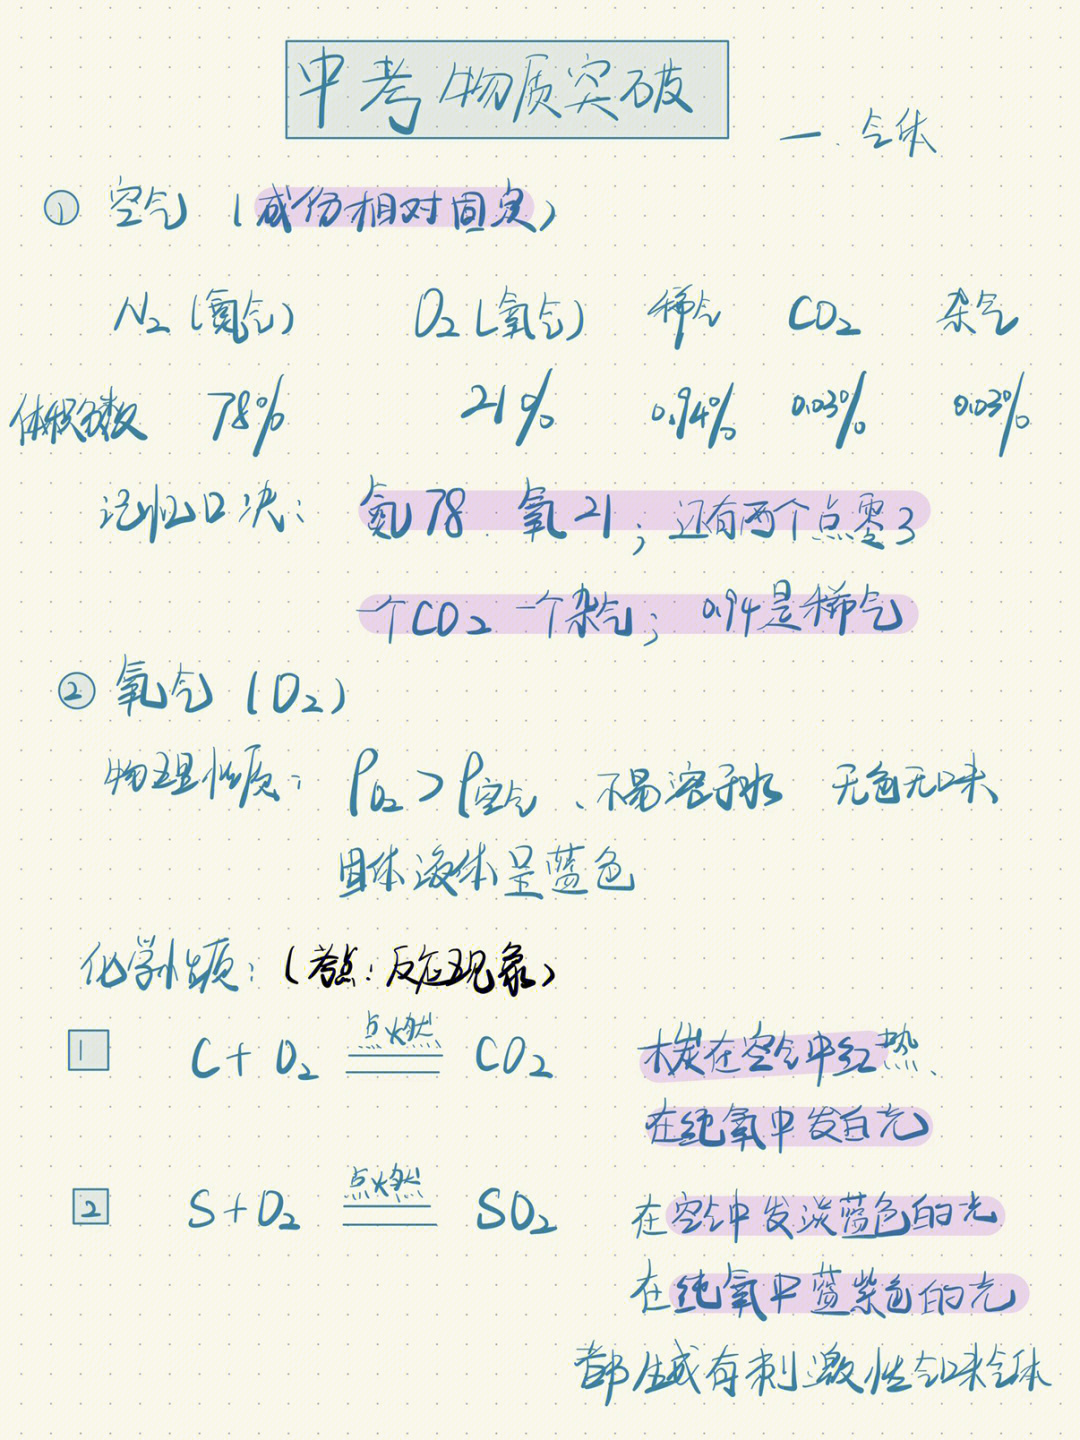 中考物质突破
一、气体
① 空气（成份相对固定）
N₂（氮气） O₂（氧气） 稀气 CO₂ 杂气
体积分数 78% 21% 0.94% 0.03% 0.03%
记忆口决： 氮78 . 氧21；还有两个点零3
一个CO₂ 一个杂气；0.94是稀气
② 氧气（O₂）
物理性质：ρO₂>ρ空气、不易溶于水 无色无味
固体液体呈蓝色
化学性质：（考点：反应现象）
1 C+O₂ 点燃 CO₂ 木炭在空气中红热、
在纯氧中发白光
2 S+O₂ 点燃 SO₂ 在空气中发淡蓝色的光
在纯氧中蓝紫色的光
都生成有刺激性气味气体